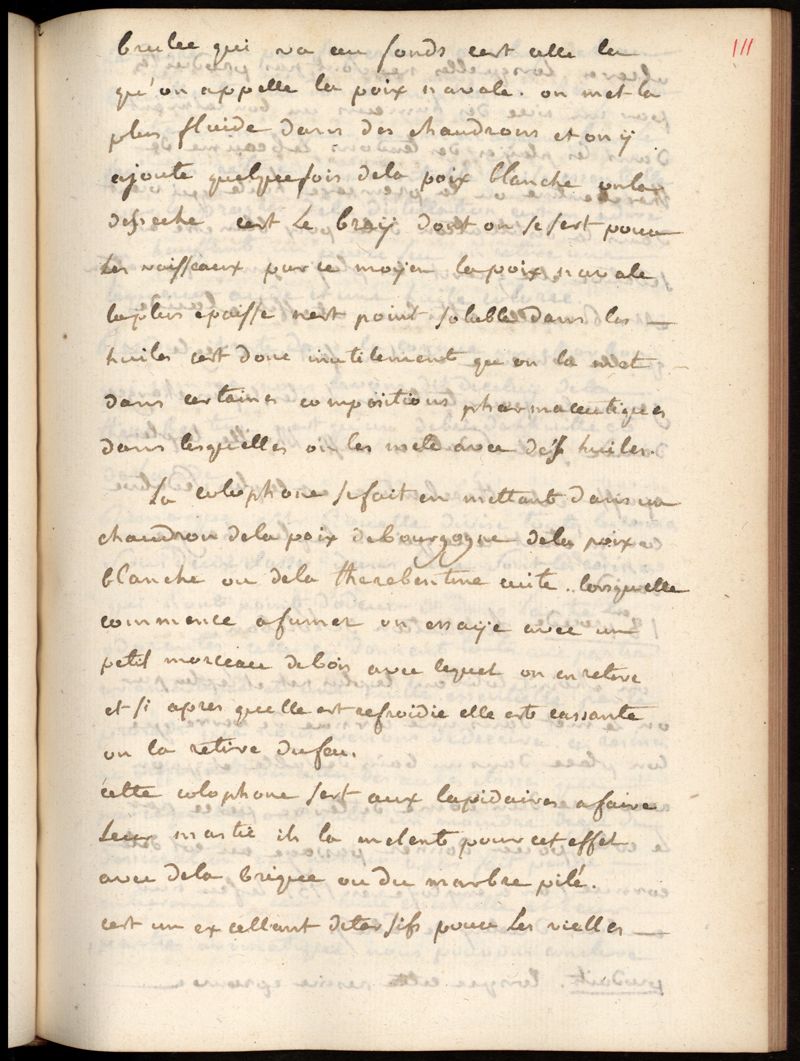 111
brulee qui va au fonds cest celle la
qu'on appelle la poix navale. on met la
plus fluide dans des chaudrons et on ÿ
ajoute quelquefois dela poix blanche on la
desseche cest Le braÿ dont on se sert pour
Les vaisseaux par ce moyen la poix navale
la plus epaisse nest point soluble dans les
huiles cest donc inutilement que on la met
dans certaines compositions pharmaceutiques
dans lesquelles on les mele avec des huiles.
La colophone se fait en mettant dans un
chaudron dela poix de bourgogne dela poix
blanche ou dela therebentine cuite .. lorsquelle
commence a fumer on essaÿe avec un
petit morceau de bois avec lequel on en retire
et si apres quelle est refroidie elle este cassante
on la retire du feu.
cette colophone sert aux lapidaires a faire
Leur mastic ils la melent pour cet effet
avec dela brique ou du marbre pilé.
cest un excellant detersifs pour Les vielles